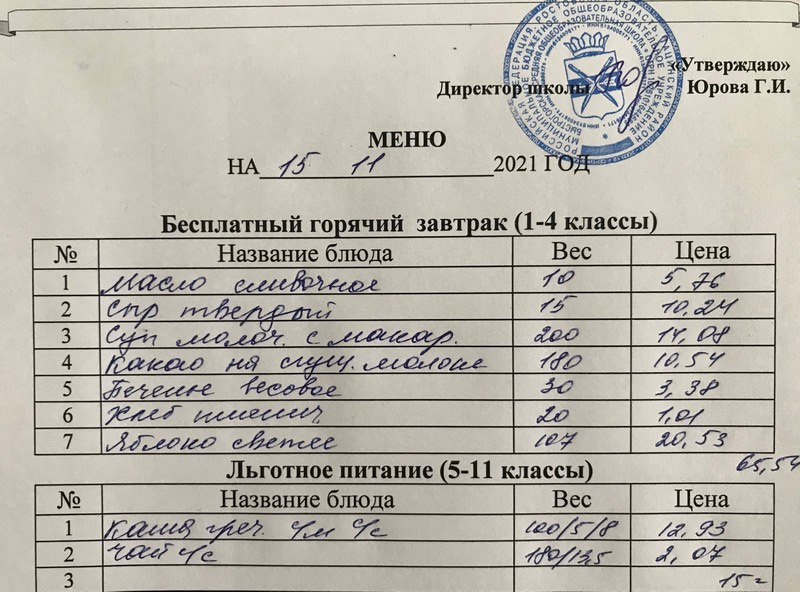 «Утверждаю»
Директор школы Юрова Г.И.
МЕНЮ
НА 15 11 2021 ГОД
Бесплатный горячий завтрак (1-4 классы)
№ Название блюда Вес Цена
1 Масло сливочное 10 5,76
2 Сыр твердый 15 10,24
3 Суп молоч. с макар. 200 14,08
4 Какао на сгущ. молоке 180 10,54
5 Печенье весовое 30 3,38
6 Хлеб пшенич 20 1,01
7 Яблоко свежее 107 20,53
65,54
Льготное питание (5-11 классы)
№ Название блюда Вес Цена
1 Каша греч. с/м с/с 100/5/8 12,93
2 Чай с/с 180/13,5 2,07
3 15=